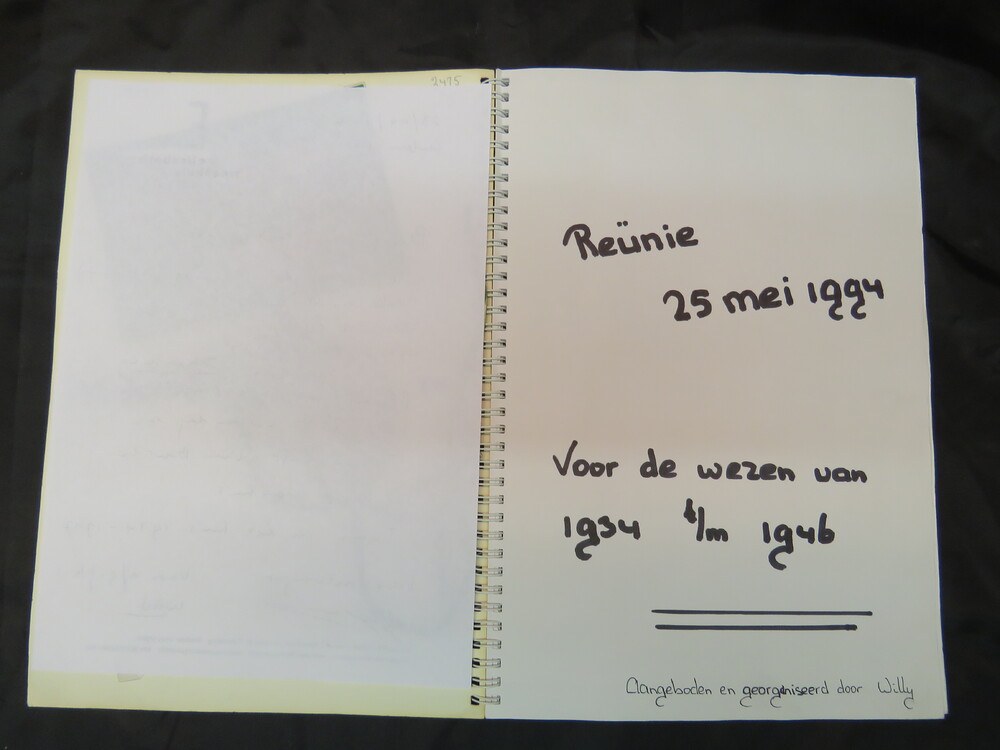 2475
Reünie
25 mei 1994
Voor de wezen van
1934 t/m 1946
Aangeboden en georganiseerd door Willy